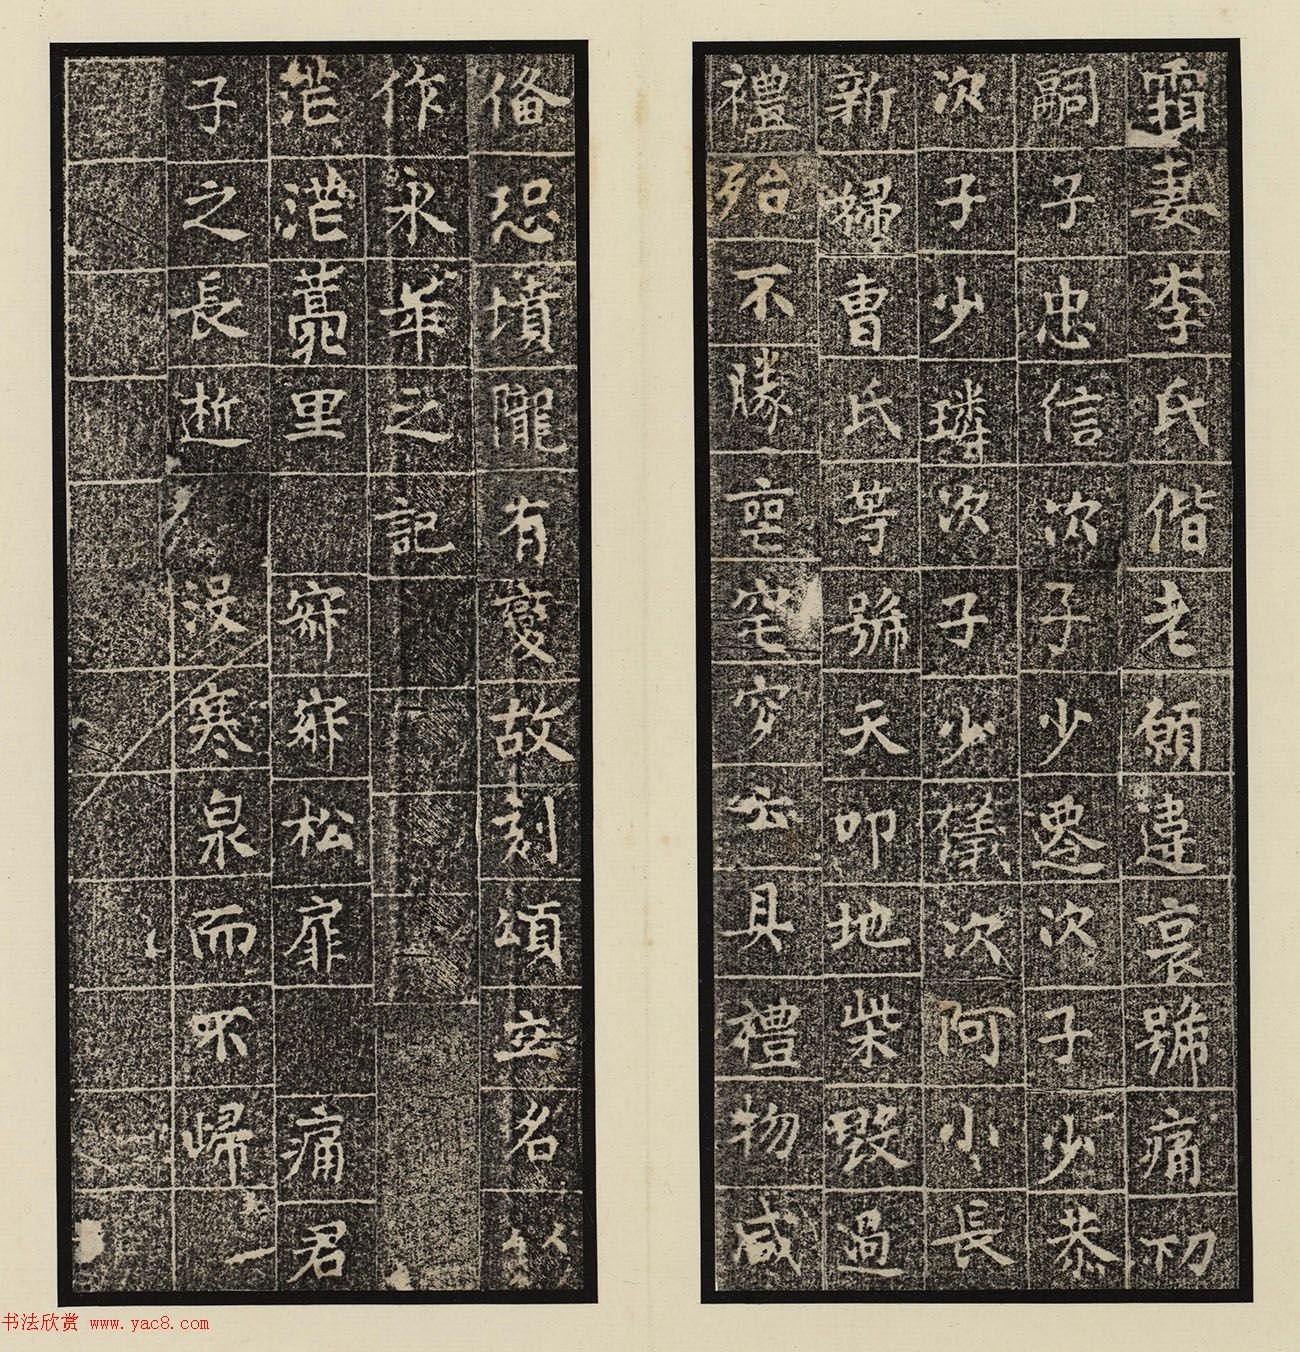 霜妻李氏偕老願違哀號痛初
嗣子忠信次子少遷次子少恭
次子少璘次子少儀次阿小長
新婦曹氏等號天叩地柴毀過
禮殆不勝喪宅穸云具禮物咸
俻恐墳隴有變故刻頌立名以
作永年之記
茫茫蒿里寂寂松扉痛君
子之長逝沒寒泉而不歸一
书法欣赏 www.yac8.com